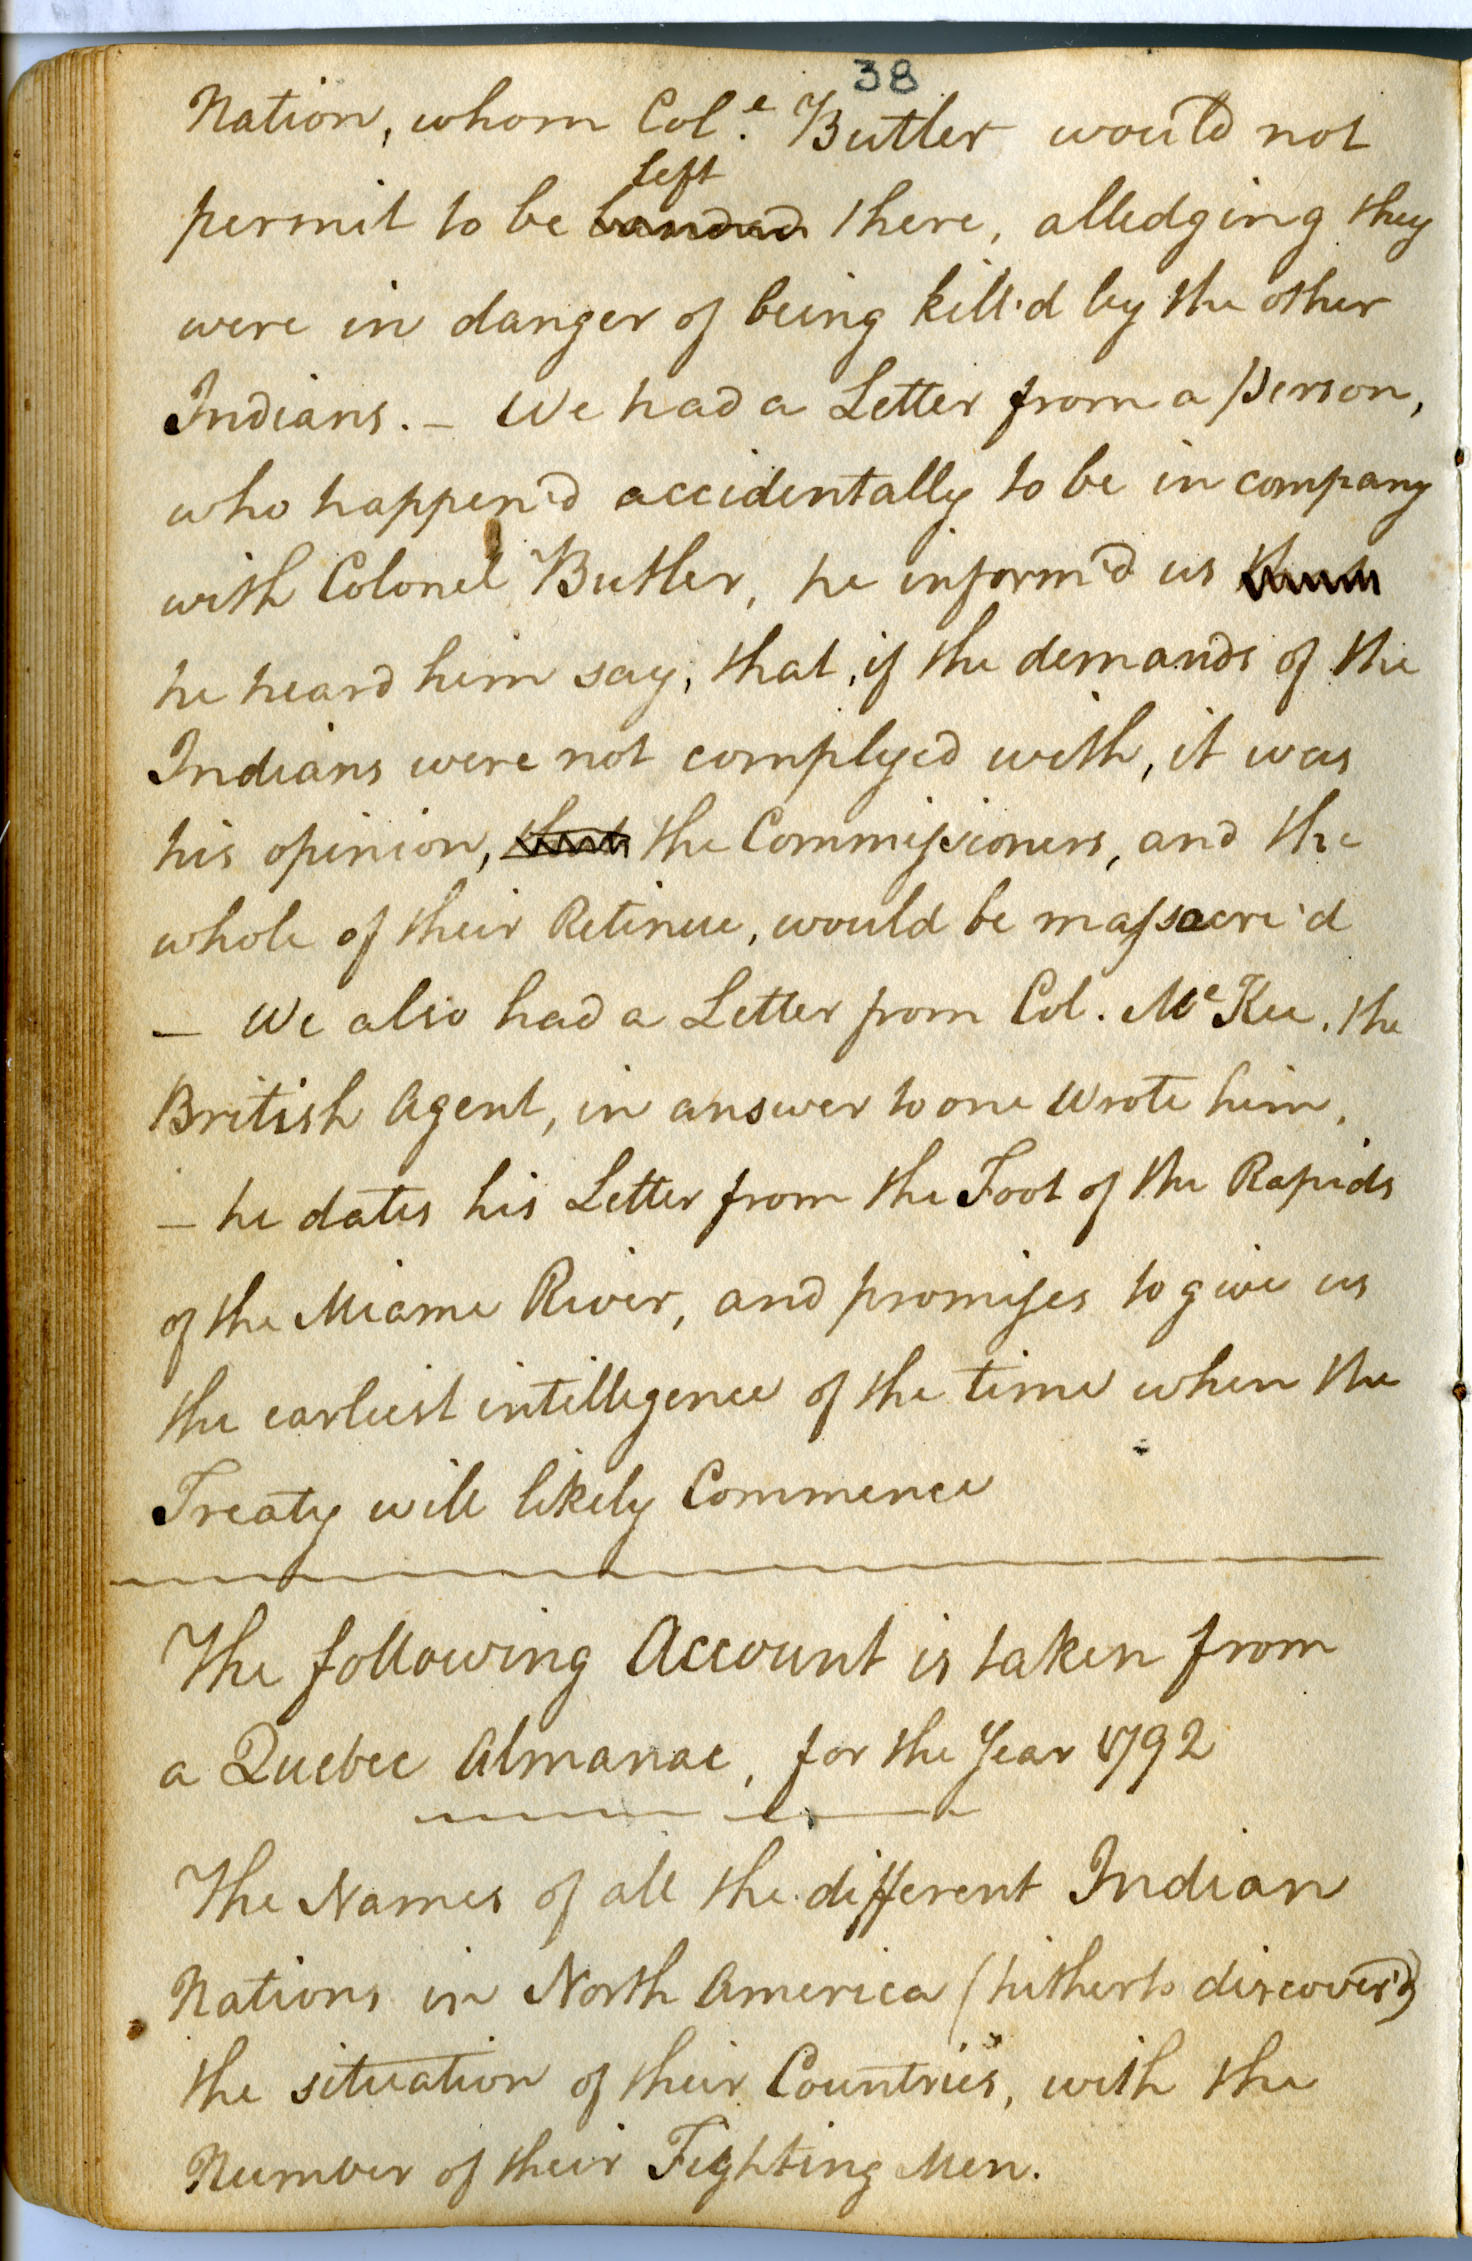 38
Nation, whom Col.e Butler would not
left
permit to be landed there, alledging they
were in danger of being kill'd by the other
Indians. — We had a Letter from a person,
who happen'd accidentally to be in company
with Colonel Butler, he inform'd us
he heard him say, that, if the demands of the
Indians were not complyed with, it was
his opinion, that the Commissioners, and the
whole of their Retinue, would be massacre'd
— We also had a Letter from Col. McKee, the
British Agent, in answer to one wrote him,
— he dates his Letter from the Foot of the Rapids
of the Miame River, and promises to give us
the earliest intelligence of the time when the
Treaty will likely Commence
The following Account is taken from
a Quebec Almanac, for the Year 1792
The Names of all the different Indian
Nations in North America (hitherto discover'd)
the situation of their Countries, with the
Number of their Fighting Men.